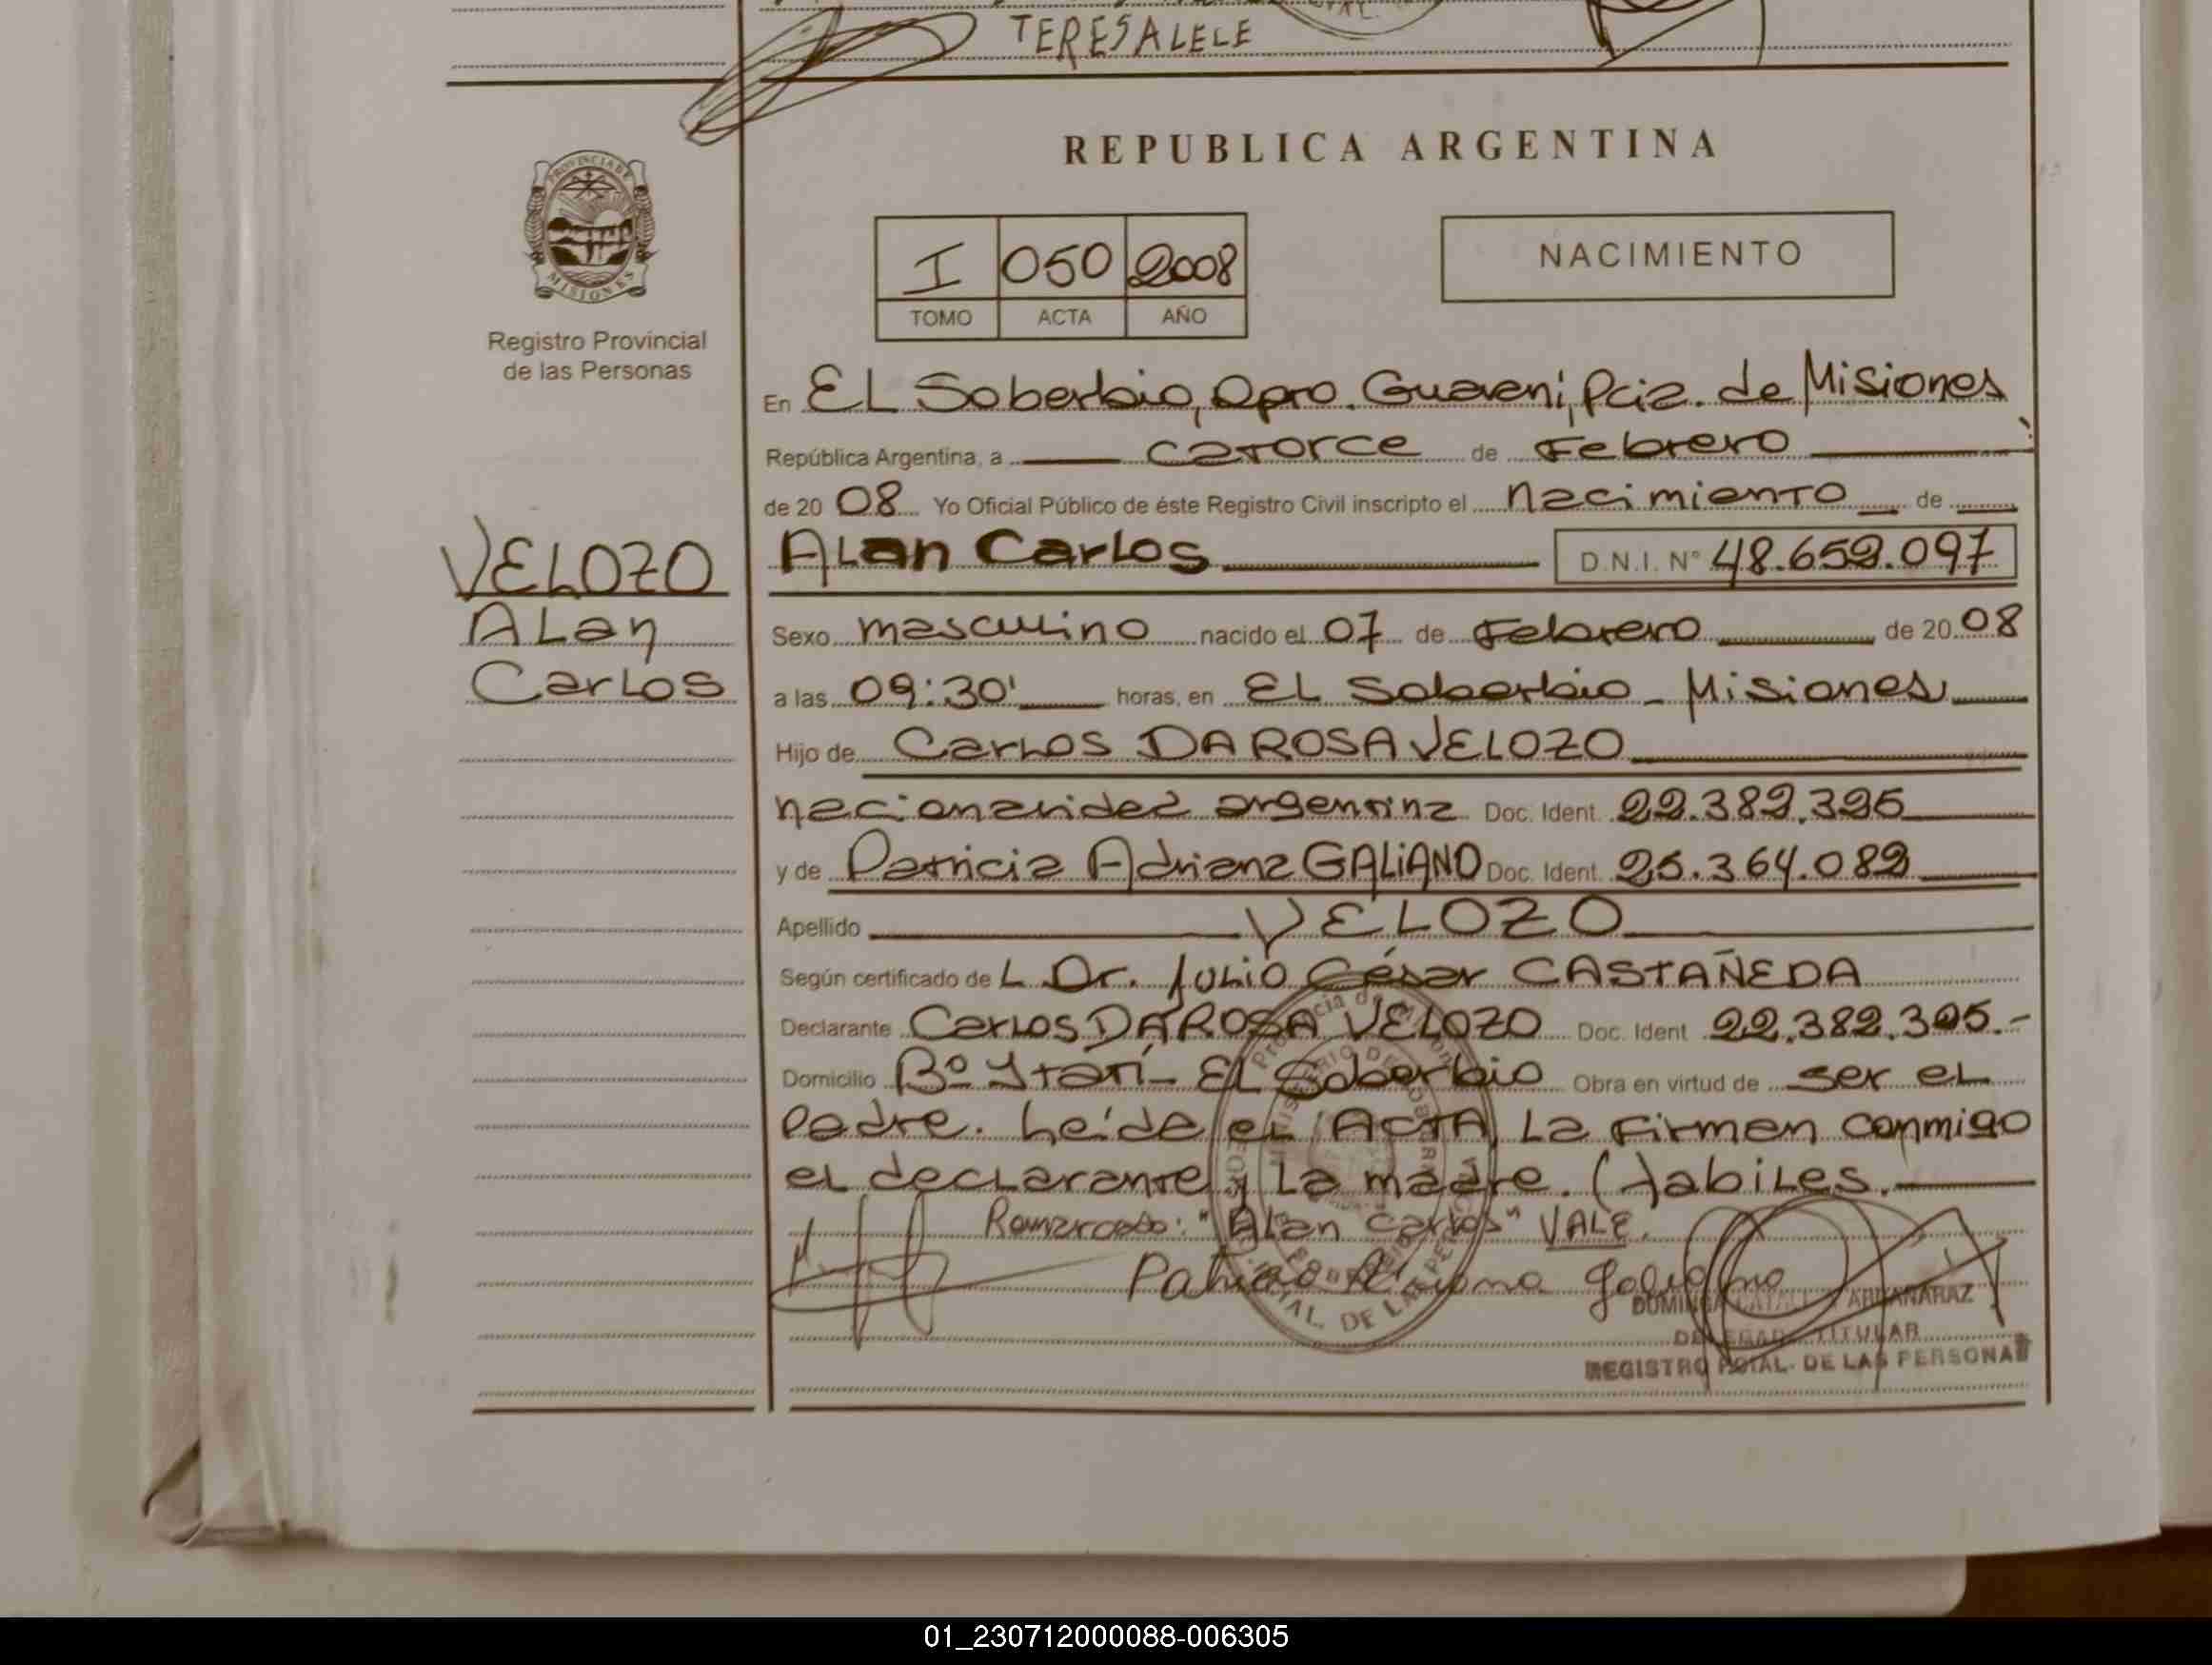 TERESA LELE
REPUBLICA ARGENTINA
PROVINCIA DE
MISIONES
Registro Provincial
de las Personas
I 050 2008
TOMO ACTA AÑO
NACIMIENTO
En EL Soberbio, Dpto. Guaraní, Pcia. de Misiones
República Argentina, a catorce de Febrero
de 20 08 Yo Oficial Público de éste Registro Civil inscripto el nacimiento de
VELOZO
Alan
Carlos
Alan Carlos D.N.I. N° 48.659.097
Sexo masculino nacido el 07 de Febrero de 20 08
a las 09:30' horas, en EL Soberbio - Misiones
Hijo de Carlos DA ROSA VELOZO
nacionalidad argentina Doc. Ident. 22.382.395
y de Patricia Adriana GALiANO Doc. Ident. 25.364.089
Apellido VELOZO
Según certificado de L Dr. Julio César CASTAÑEDA
Declarante Carlos DA ROSA VELOZO Doc. Ident 22.382.395.-
Domicilio Bº Itatí - EL Soberbio Obra en virtud de ser el
Padre. Leída el ACTA, La firman conmigo
el declarante y La madre. Habiles.
Remarcado: "Alan Carlos" VALE.
Patricia Adriana Galiano
ARGAÑARAZ
TITULAR
REGISTRO PCIAL. DE LAS PERSONAS
01_230712000088-006305